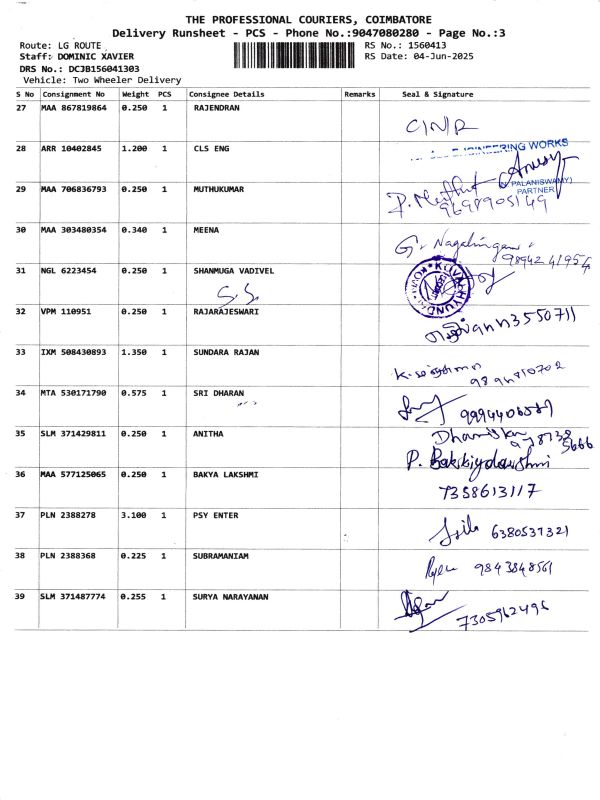 THE PROFESSIONAL COURIERS, COIMBATORE
Delivery Runsheet - PCS - Phone No.:9047080280 - Page No.:3
Route: LG ROUTE RS No.: 1560413
Staff: DOMINIC XAVIER RS Date: 04-Jun-2025
DRS No.: DCJB156041303
Vehicle: Two Wheeler Delivery
S No Consignment No Weight PCS Consignee Details Remarks Seal & Signature
27 MAA 867819864 0.250 1 RAJENDRAN
28 ARR 10402845 1.200 1 CLS ENG
ENGINEERING WORKS
(PALANISWAMY)
PARTNER
29 MAA 706836793 0.250 1 MUTHUKUMAR
9698905149
30 MAA 303480354 0.340 1 MEENA
G. Nagalingam
9894241954
31 NGL 6223454 0.250 1 SHANMUGA VADIVEL
S.S.
32 VPM 110951 0.250 1 RAJARAJESWARI
33 IXM 508430893 1.350 1 SUNDARA RAJAN
34 MTA 530171790 0.575 1 SRI DHARAN
35 SLM 371429811 0.250 1 ANITHA
36 MAA 577125065 0.250 1 BAKYA LAKSHMI
7358613117
37 PLN 2388278 3.100 1 PSY ENTER
6380531321
38 PLN 2388368 0.225 1 SUBRAMANIAM
9843848561
39 SLM 371487774 0.255 1 SURYA NARAYANAN
7305962496